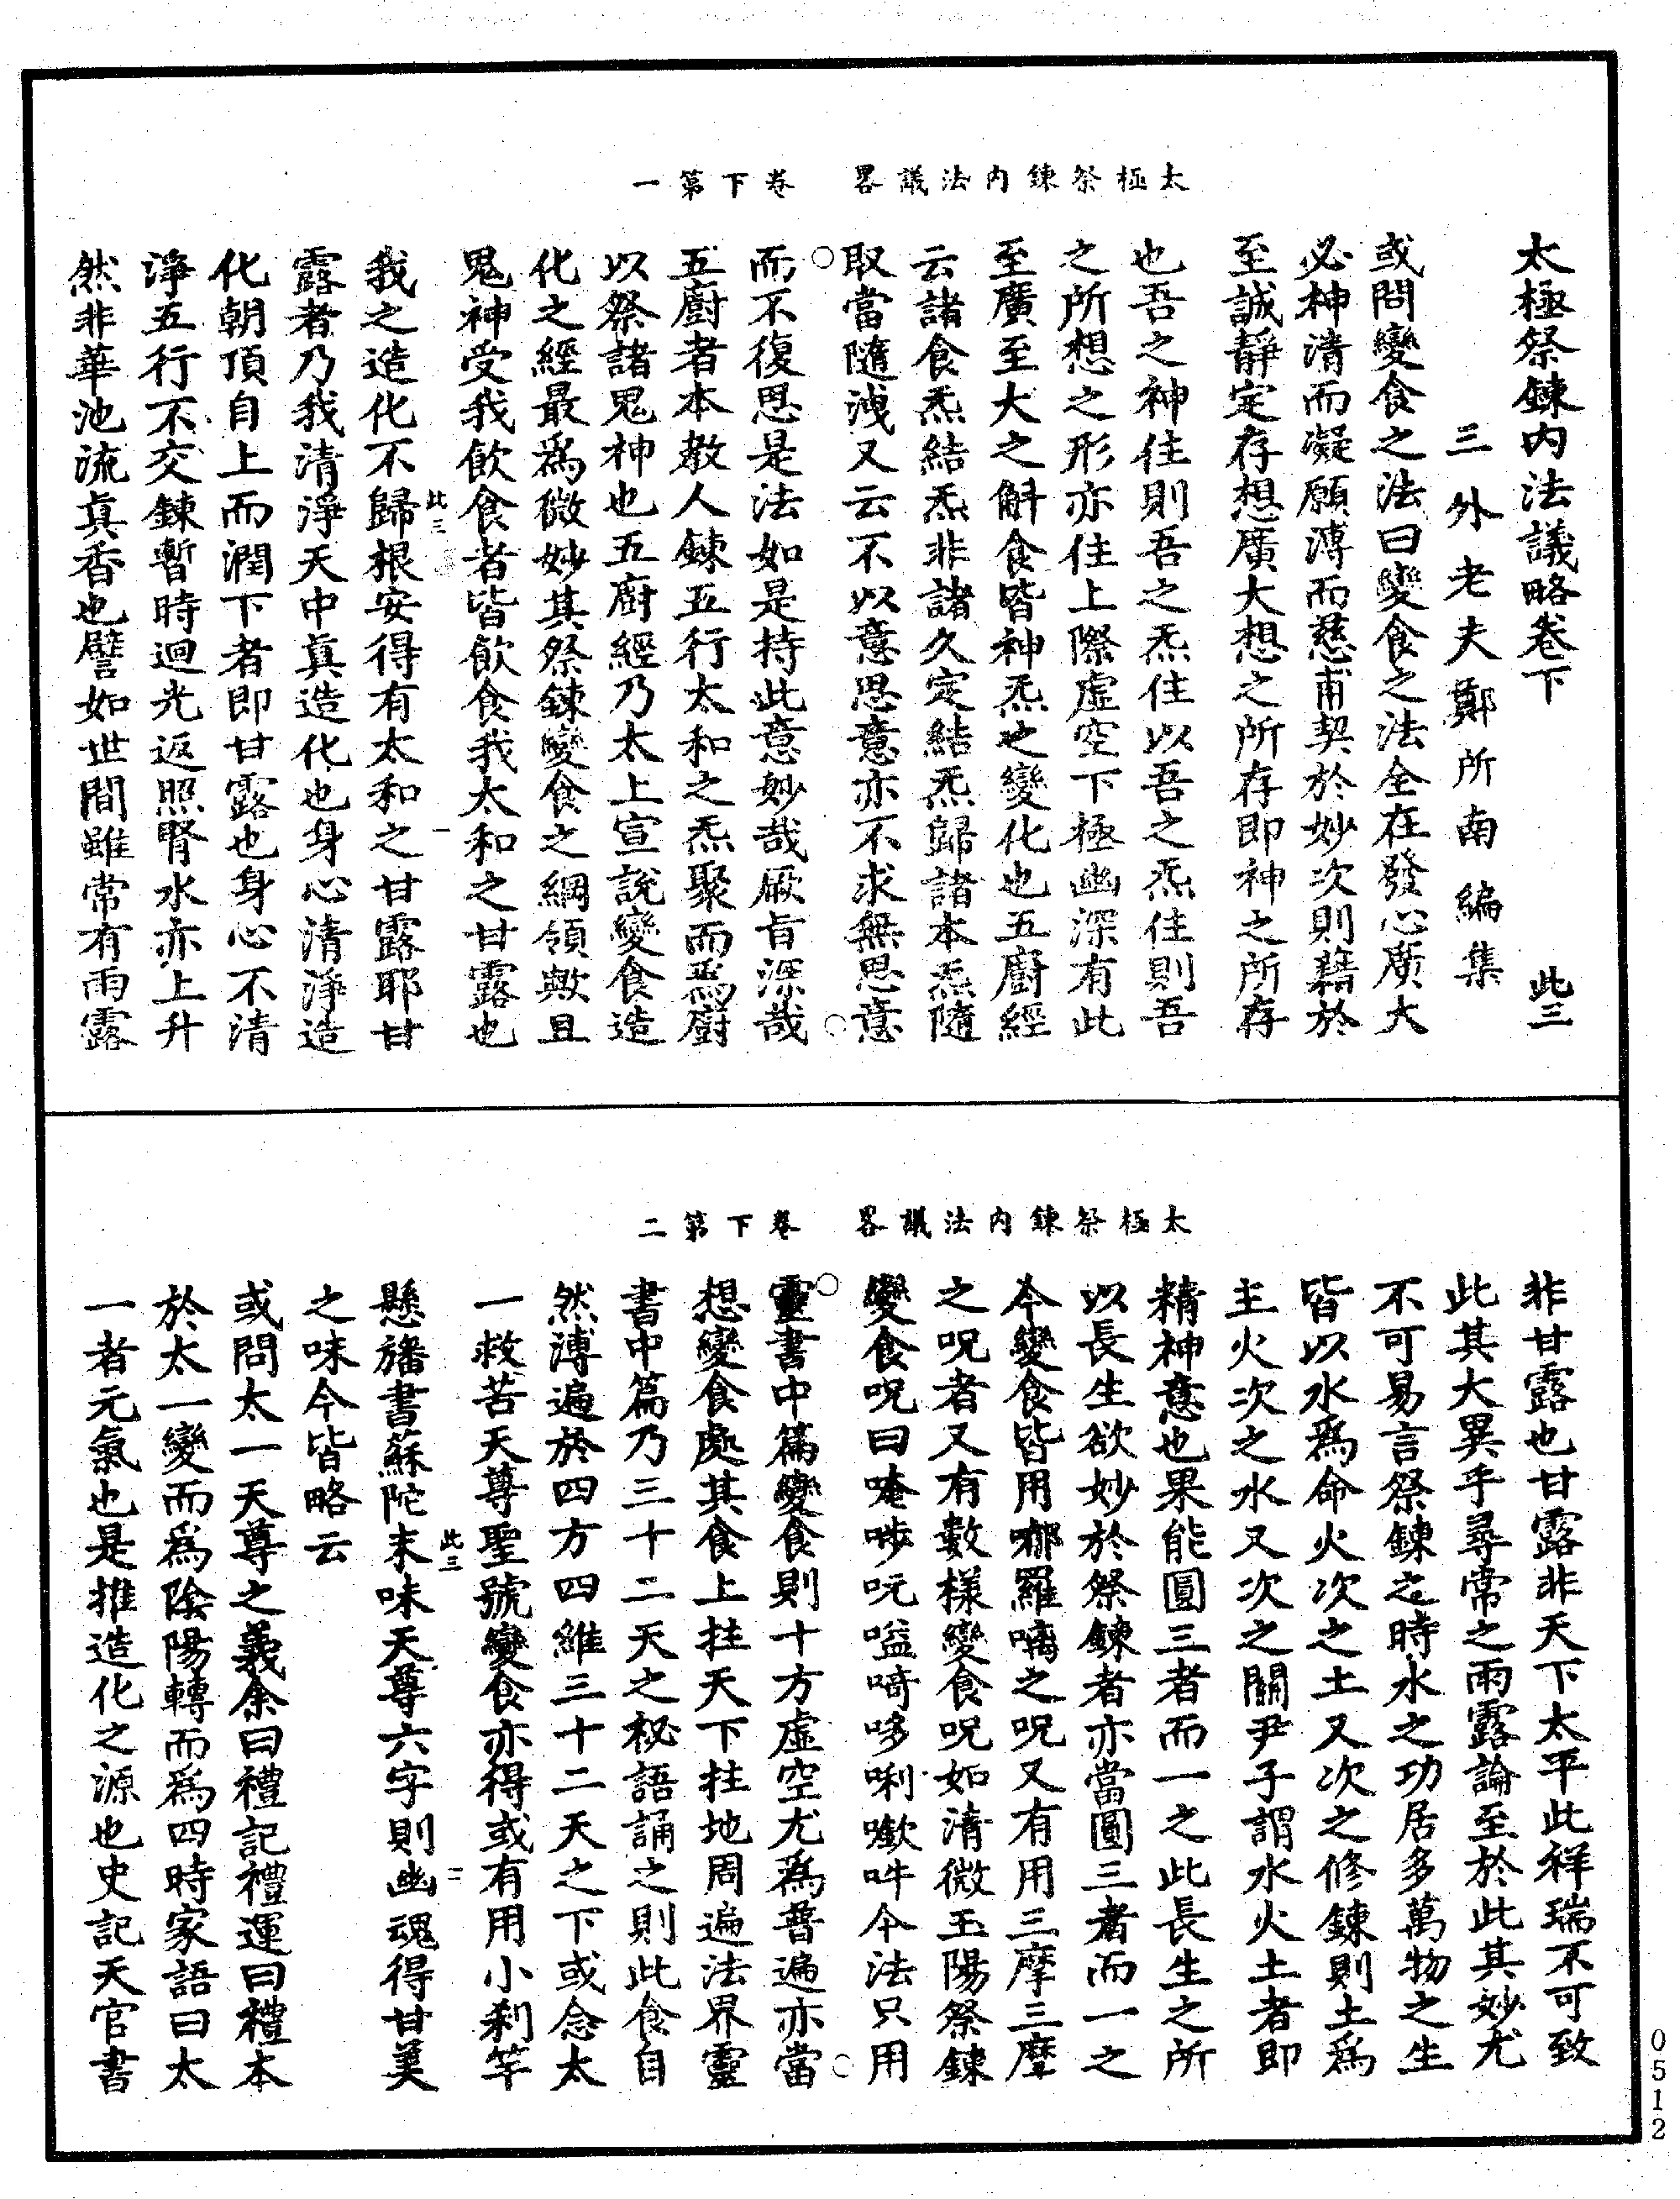 太極祭鍊內法議畧　卷下第一
太極祭鍊內法議略卷下　此三
三外老夫鄭所南編集
或問變食之法曰變食之法全在發心廣大
必神清而凝願溥而慈甫契於妙次則藉於
至誠靜定存想廣大想之所存即神之所存
也吾之神住則吾之炁住以吾之炁住則吾
之所想之形亦住上際虛空下極幽深有此
至廣至大之斛食皆神炁之變化也五廚經
云諸食炁結炁非諸久定結炁歸諸本炁隨
取當隨洩又云不以意思意亦不求無思意
○而不復思是法如是持此意妙哉厥旨深哉○
五廚者本教人鍊五行太和之炁聚而爲廚
以祭諸鬼神也五廚經乃太上宣說變食造
化之經最爲微妙其祭鍊變食之綱領歟且
鬼神受我飲食者皆飲食我太和之甘露也
此三　一
我之造化不歸根安得有太和之甘露耶甘
露者乃我清淨天中真造化也身心清淨造
化朝頂自上而潤下者即甘露也身心不清
淨五行不交鍊暫時迴光返照腎水亦上升
然非華池流真香也譬如世間雖常有雨露
太極祭鍊內法議畧　卷下第二
非甘露也甘露非天下太平此祥瑞不可致
此其大異乎尋常之雨露論至於此其妙尤
不可易言祭鍊之時水之功居多萬物之生
皆以水爲命火次之土又次之修鍊則土爲
主火次之水又次之關尹子謂水火土者即
精神意也果能圓三者而一之此長生之所
以長生欲妙於祭鍊者亦當圓三者而一之
今變食皆用㖿囉㗫之呪又有用三摩三摩
之呪者又有數樣變食呪如清微玉陽祭鍊
變食呪曰唵㖡吰嗌㗁哆唎㘈吽今法只用
○靈書中篇變食則十方虛空尤爲普遍亦當○
想變食處其食上拄天下拄地周遍法界靈
書中篇乃三十二天之秘語誦之則此食自
然溥遍於四方四維三十二天之下或念太
一救苦天尊聖號變食亦得或有用小剎竿
此三　二
懸旛書蘇陀末味天尊六字則幽魂得甘美
之味今皆略云
或問太一天尊之義余曰禮記禮運曰禮本
於太一變而爲陰陽轉而爲四時家語曰太
一者元氣也是推造化之源也史記天官書
0512